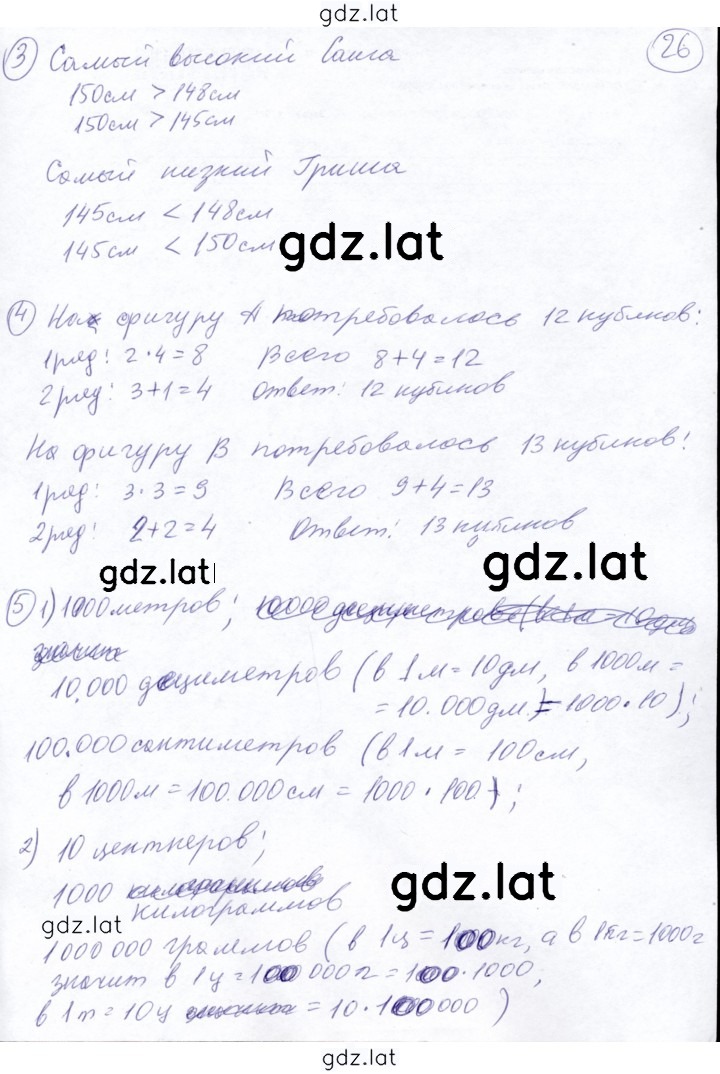 gdz.lat
26
3 Самый высокий Саша
150см > 148см
150см > 145см
Самый низкий Гриша
145см < 148см
145см < 150см
gdz.lat
4 На фигуру А потребовалось 12 кубиков:
1 ряд: 2·4=8 Всего 8+4=12
2 ряд: 3+1=4 Ответ: 12 кубиков
На фигуру В потребовалось 13 кубиков:
1 ряд: 3·3=9 Всего 9+4=13
2 ряд: 2+2=4 Ответ: 13 кубиков
gdz.lat
gdz.lat
5 1) 1000 метров;
10.000 дециметров (в 1м=10дм, в 1000м=
=10.000дм.=1000·10);
100.000 сантиметров (в 1м = 100см,
в 1000м=100.000см=1000·100);
2) 10 центнеров;
gdz.lat
1000
килограммов
gdz.lat
1000000 граммов (в 1ц=100кг, а в 1кг=1000г
значит в 1ц=100000г=100·1000,
в 1т=10ц =10·100000)
gdz.lat